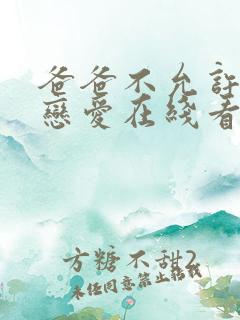 爸爸不允許
戀愛在綫看
方糖不甜2
未经同意禁止搭我